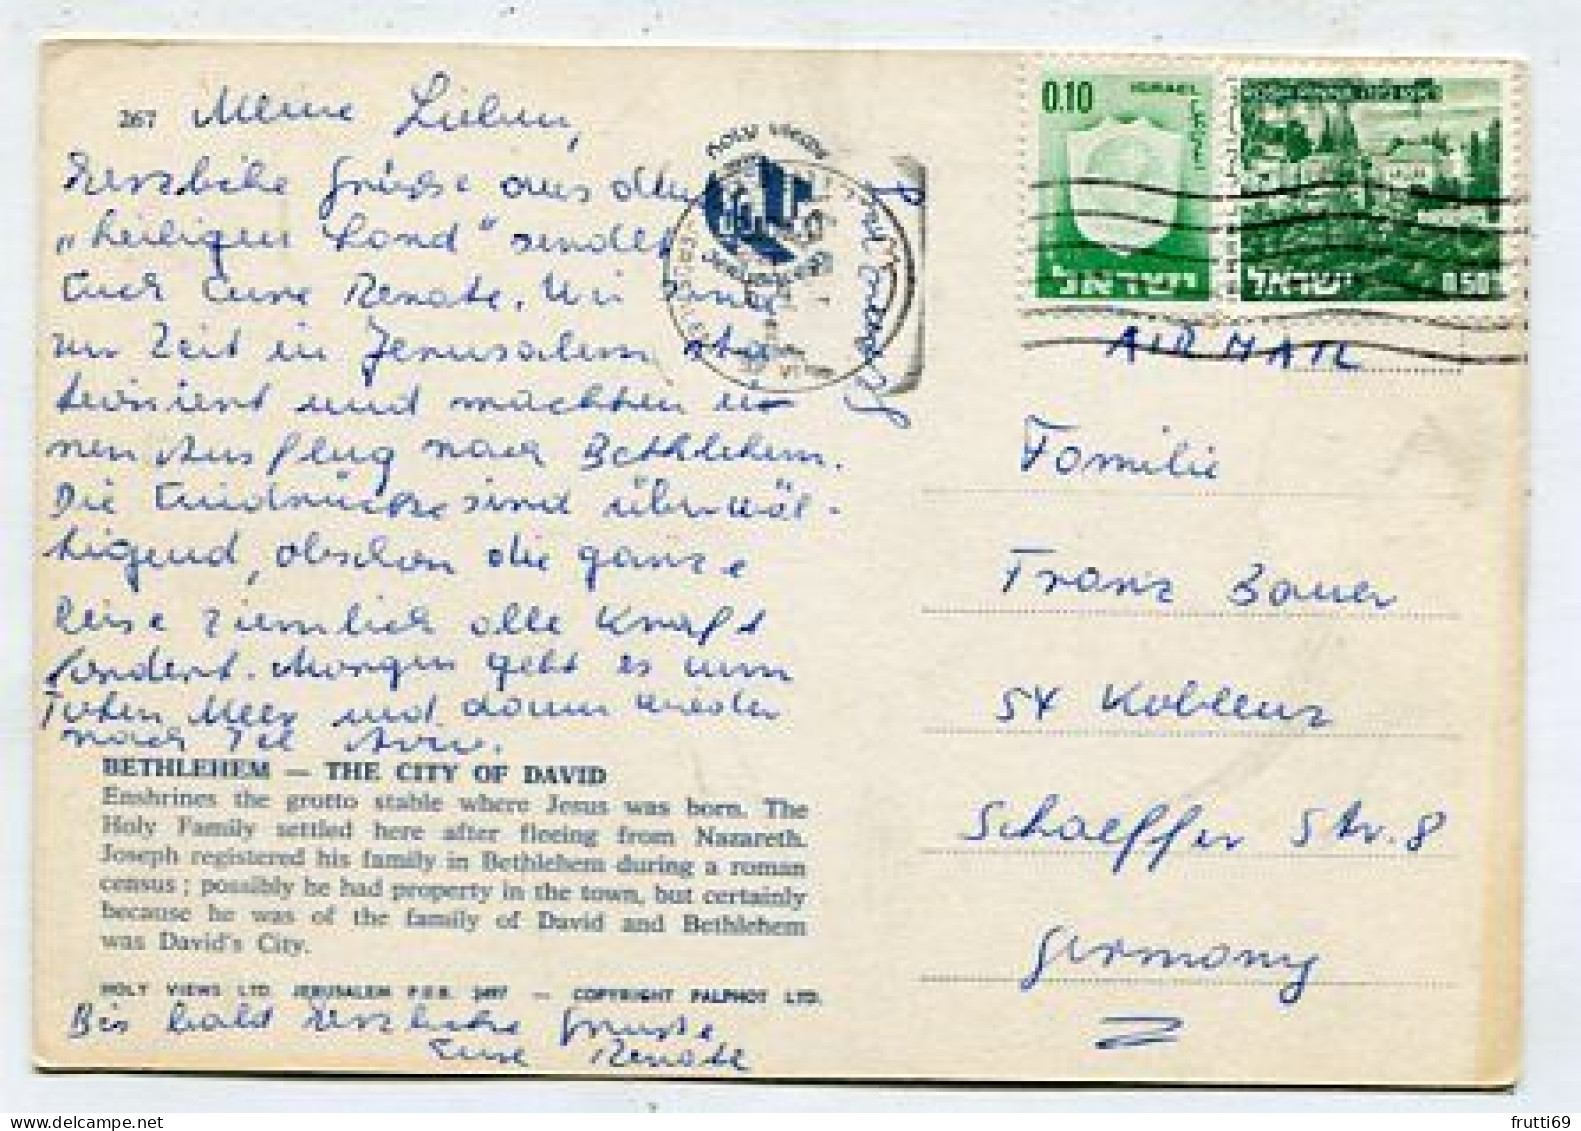 267 Meine Lieben,
Herzliche Grüsse aus dem
„heiligen Land" sendet
Euch Eure Renate. Wir sind
zur Zeit in Jerusalem sta-
tioniert und machten ei-
nen Ausflug nach Bethlehem.
Die Eindrücke sind überwäl-
tigend, obschon die ganze
Reise ziemlich alle Kraft
fordert. Morgen geht es zum
Toten Meer und dann wieder
nach Tel Aviv.
BETHLEHEM — THE CITY OF DAVID
Enshrines the grotto stable where Jesus was born. The
Holy Family settled here after fleeing from Nazareth.
Joseph registered his family in Bethlehem during a roman
census; possibly he had property in the town, but certainly
because he was of the family of David and Bethlehem
was David's City.
HOLY VIEWS LTD JERUSALEM P.O.B. 2497 — COPYRIGHT PALPHOT LTD.
Bis bald herzliche Grüsse
Eure Renate
HOLY VIEWS
0.10 ISRAEL
إسرائيل
ישראל
ישראל 0.50
AIR MAIL
Familie
Franz Bauer
54 Koblenz
Schaeffer Str. 8
Germany
frutti69